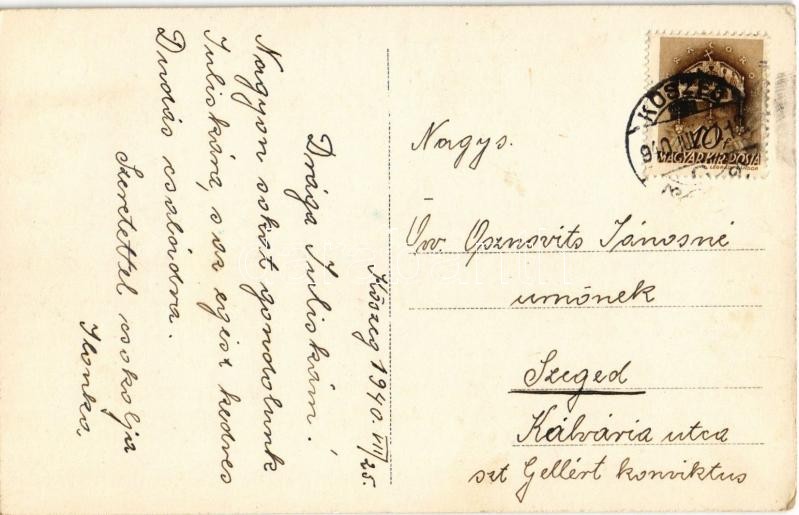 Kőszeg 1940. VII/25.
Drága Juliskám!
Nagyon sokat gondolunk
Juliskára, s az egész kedves
Dudás családra.
Szeretettel csókolja
Ilonka.
KŐSZEG
10 f
MAGYAR KIR. POSTA
Nagys.
Özv. Osznovits Jánosné
urnőnek
Szeged
Kálvária utca
szt Gellért konviktus